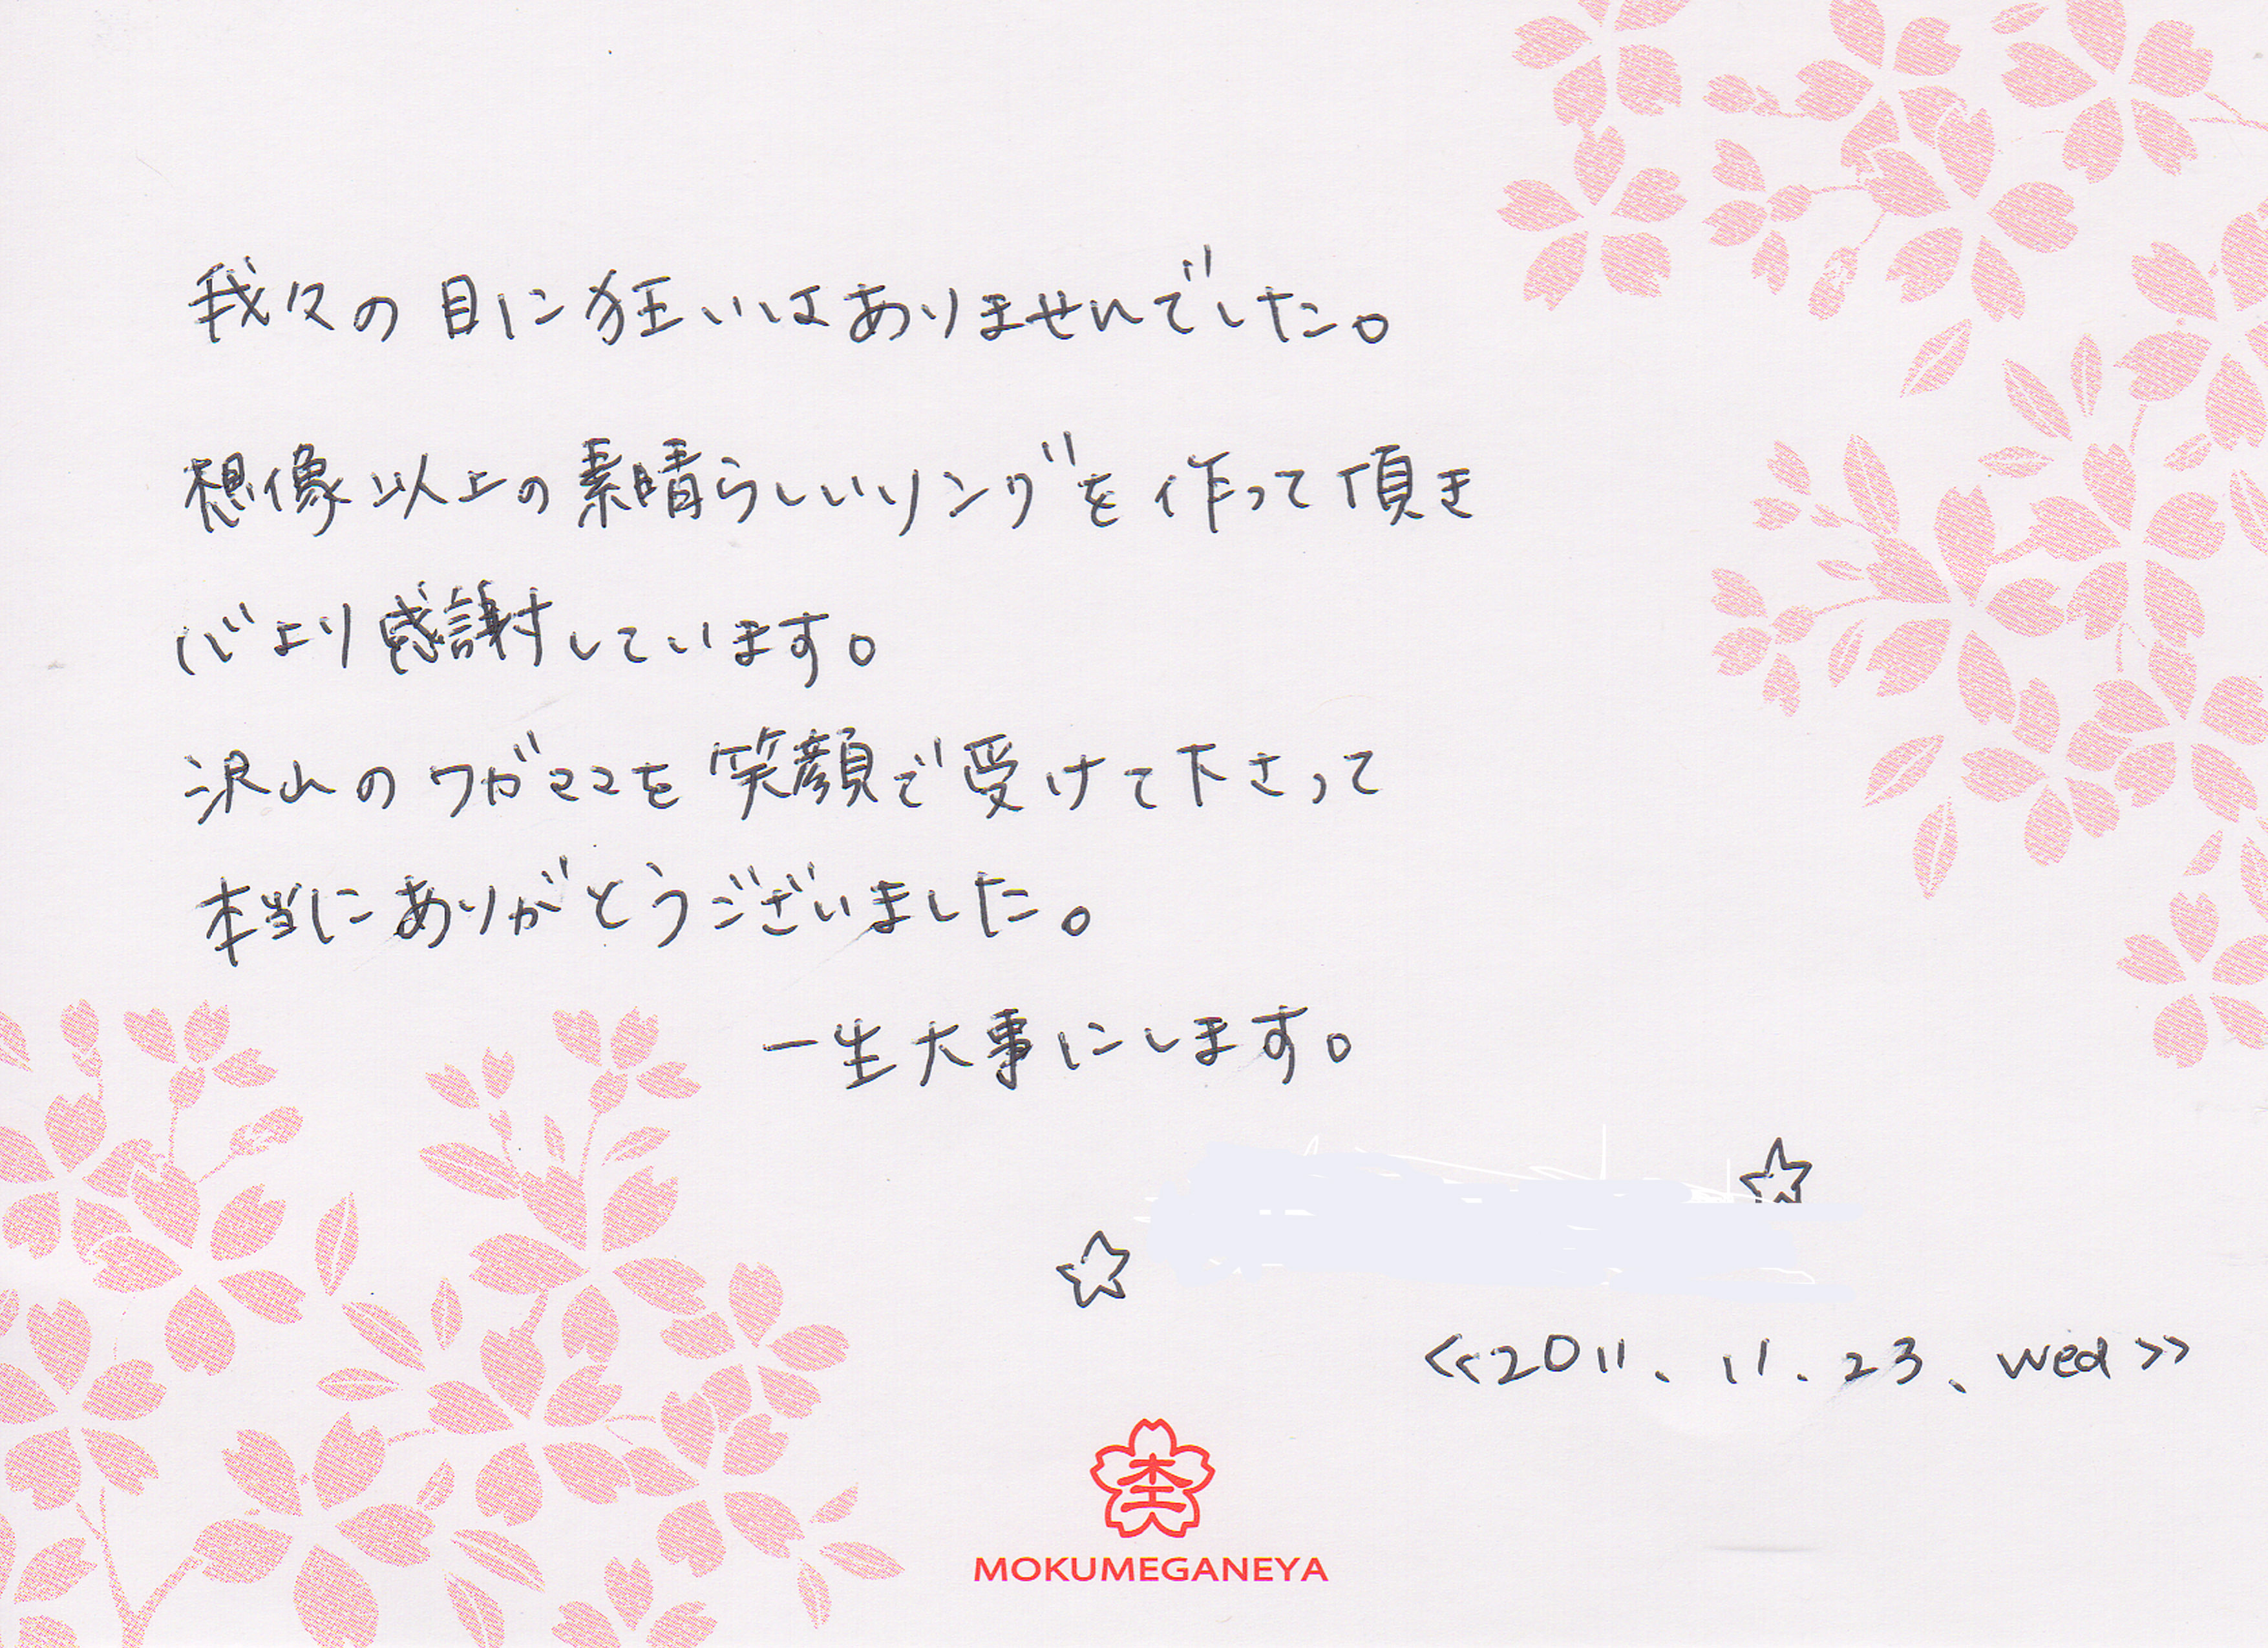 我々の目に狂いはありませんでした。
想像以上の素晴らしいリングを作って頂き
心より感謝しています。
沢山のワガママを笑顔で受けて下さって
本当にありがとうございました。
一生大事にします。
☆ ☆
<<2011. 11. 23. wed>>
杢
MOKUMEGANEYA